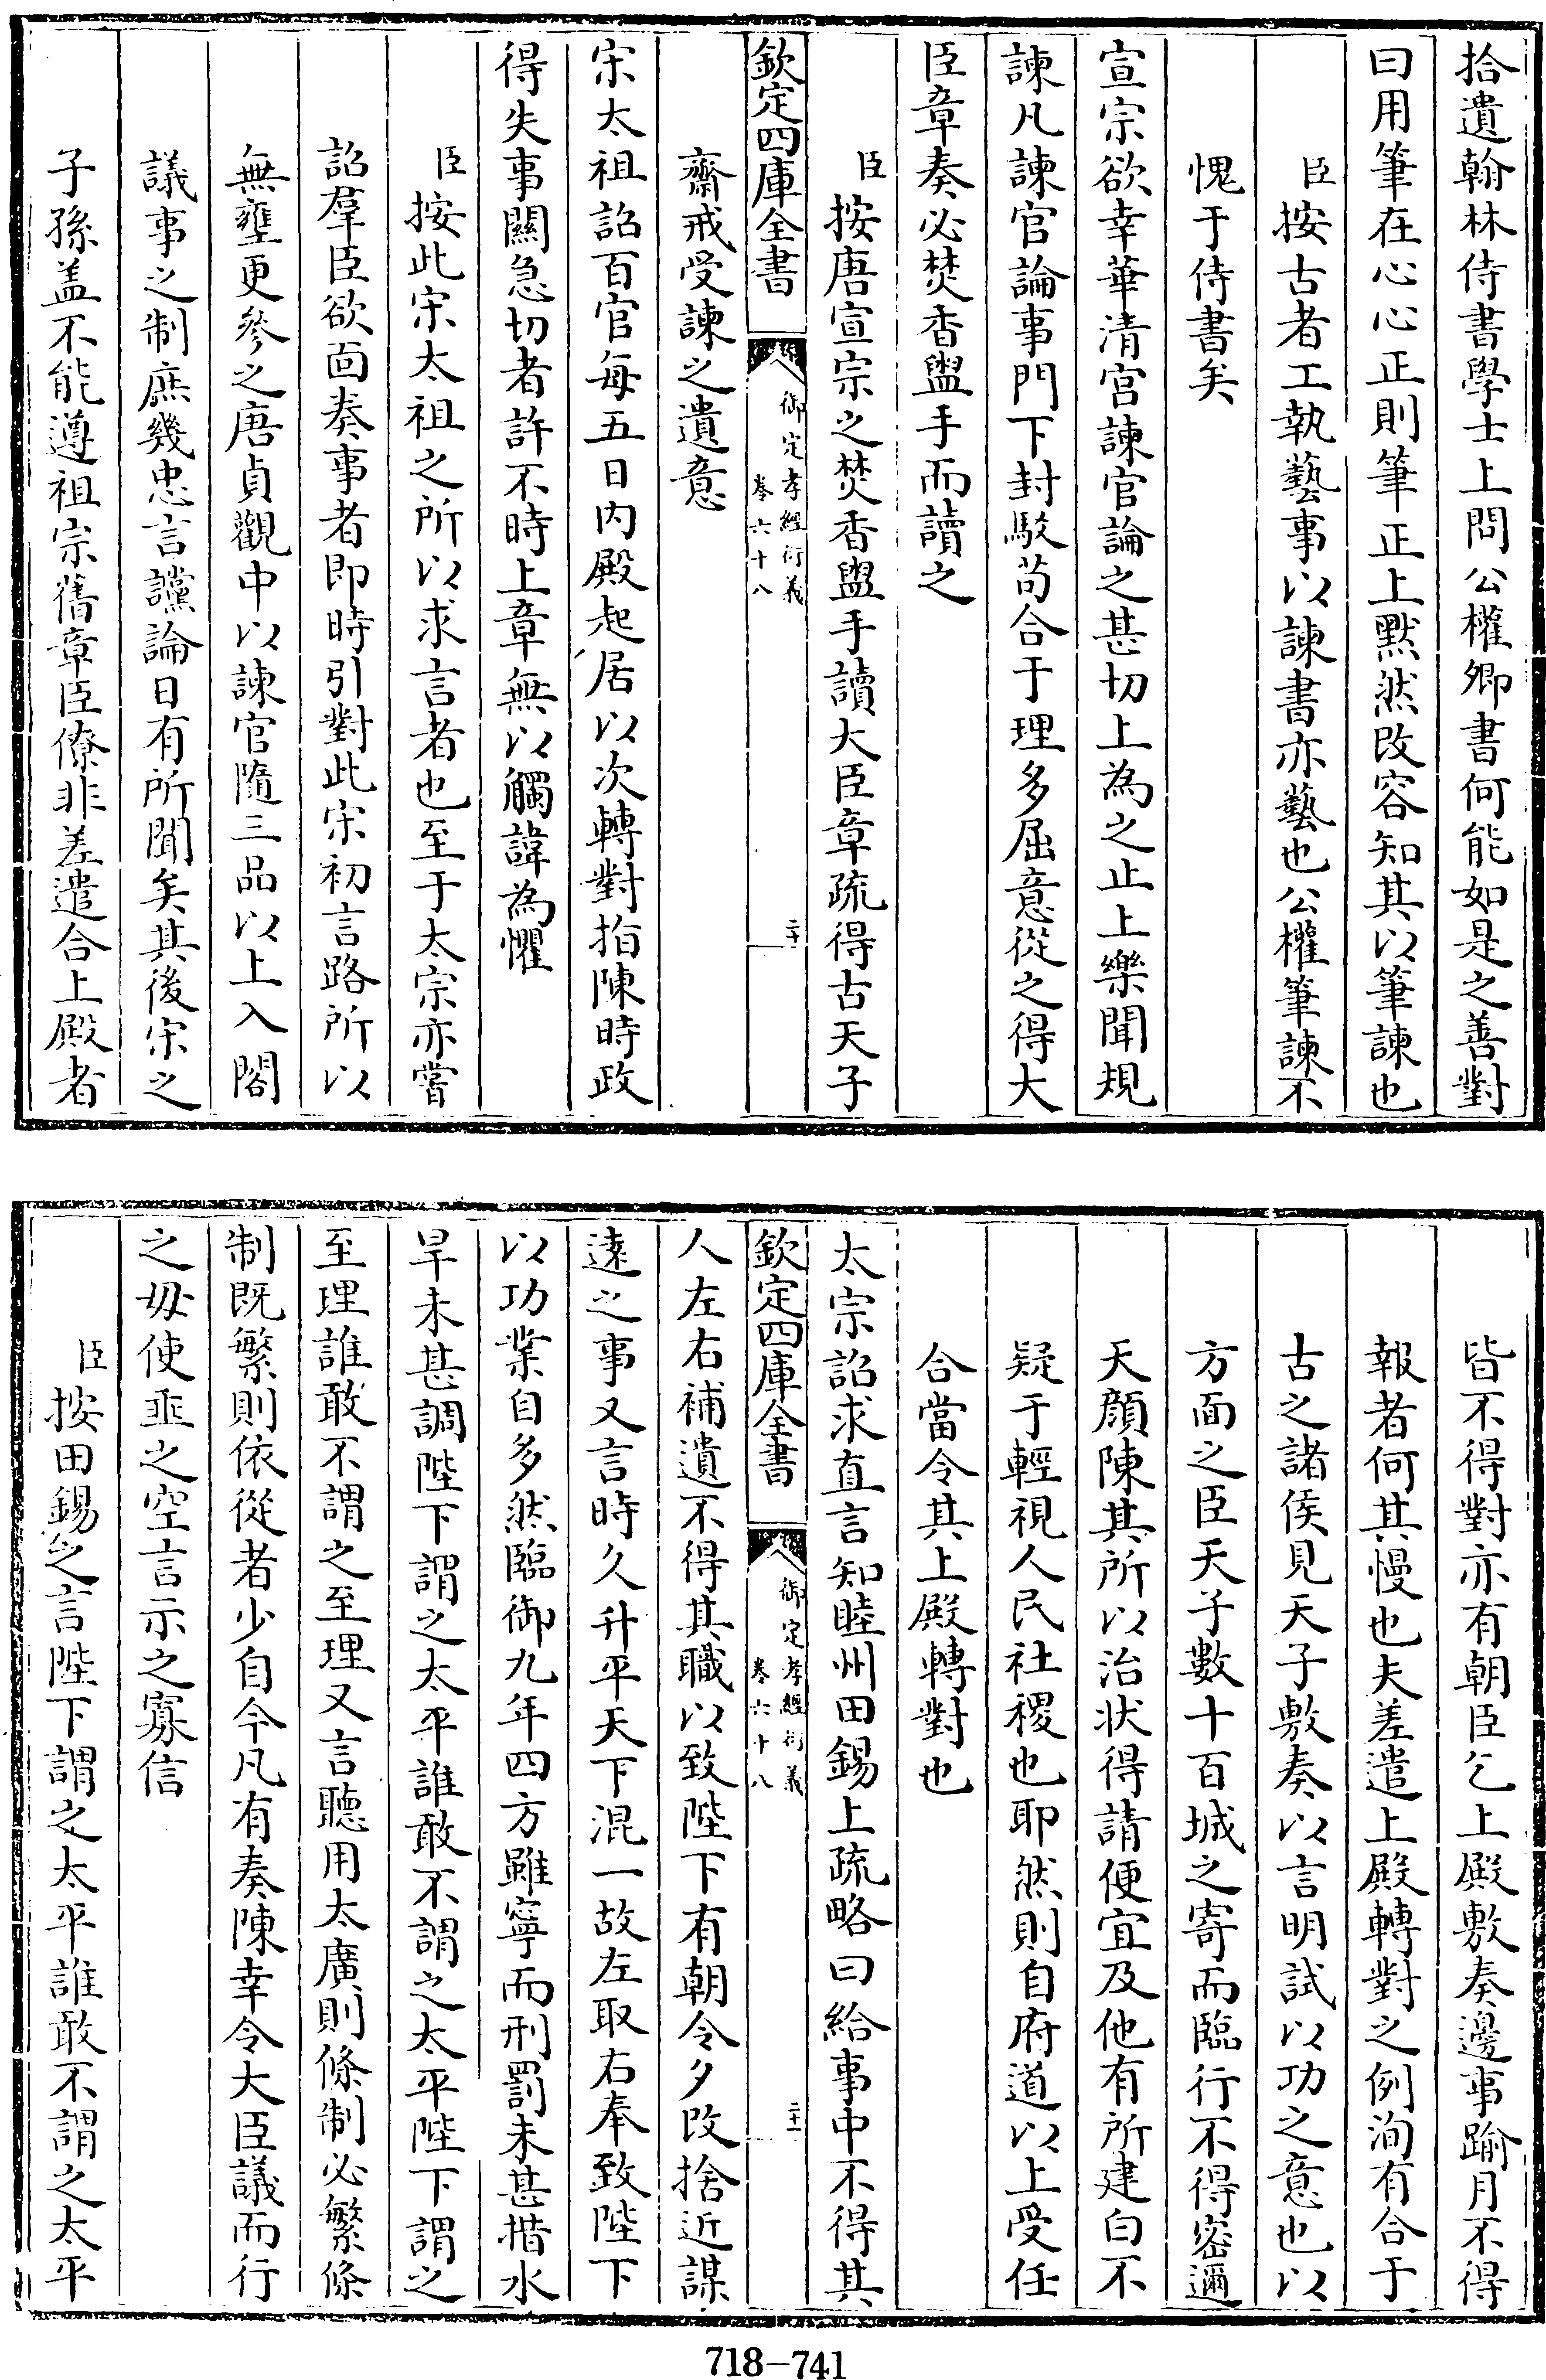 拾遺翰林侍書學士上問公權卿書何能如是之善對
曰用筆在心心正則筆正上默然改容知其以筆諫也
臣按古者工執藝事以諫書亦藝也公權筆諫不
愧于侍書矣
宣宗欲幸華清宮諫官論之甚切上為之止上樂聞規
諫凡諫官論事門下封駮茍合于理多屈意從之得大
臣章奏必焚香盥手而讀之
臣按唐宣宗之焚香盥手讀大臣章疏得古天子
欽定四庫全書
御定孝經衍義
卷六十八
二十
齋戒受諫之遺意
宋太祖詔百官每五日內殿起居以次轉對指陳時政
得失事關急切者許不時上章無以觸諱為懼
臣按此宋太祖之所以求言者也至于太宗亦嘗
詔羣臣欲面奏事者即時引對此宋初言路所以
無壅更參之唐貞觀中以諫官隨三品以上入閤
議事之制庶幾忠言讜論日有所聞矣其後宋之
子孫盖不能遵祖宗舊章臣僚非差遣合上殿者
皆不得對亦有朝臣乞上殿敷奏邊事踰月不得
報者何其慢也夫差遣上殿轉對之例洵有合于
古之諸侯見天子敷奏以言明試以功之意也以
方面之臣天子數十百城之寄而臨行不得密邇
天顏陳其所以治狀得請便宜及他有所建白不
疑于輕視人民社稷也耶然則自府道以上受任
合當令其上殿轉對也
太宗詔求直言知睦州田錫上疏略曰給事中不得其
欽定四庫全書
御定孝經衍義
卷六十八
二十一
人左右補遺不得其職以致陛下有朝令夕改捨近謀
遠之事又言時久升平天下混一故左取右奉致陛下
以功業自多然臨御九年四方雖寧而刑罰未甚措水
旱未甚調陛下謂之太平誰敢不謂之太平陛下謂之
至理誰敢不謂之至理又言聽用太廣則條制必繁條
制既繁則依從者少自今凡有奏陳幸令大臣議而行
之毋使垂之空言示之寡信
臣按田錫之言陛下謂之太平誰敢不謂之太平
718-741